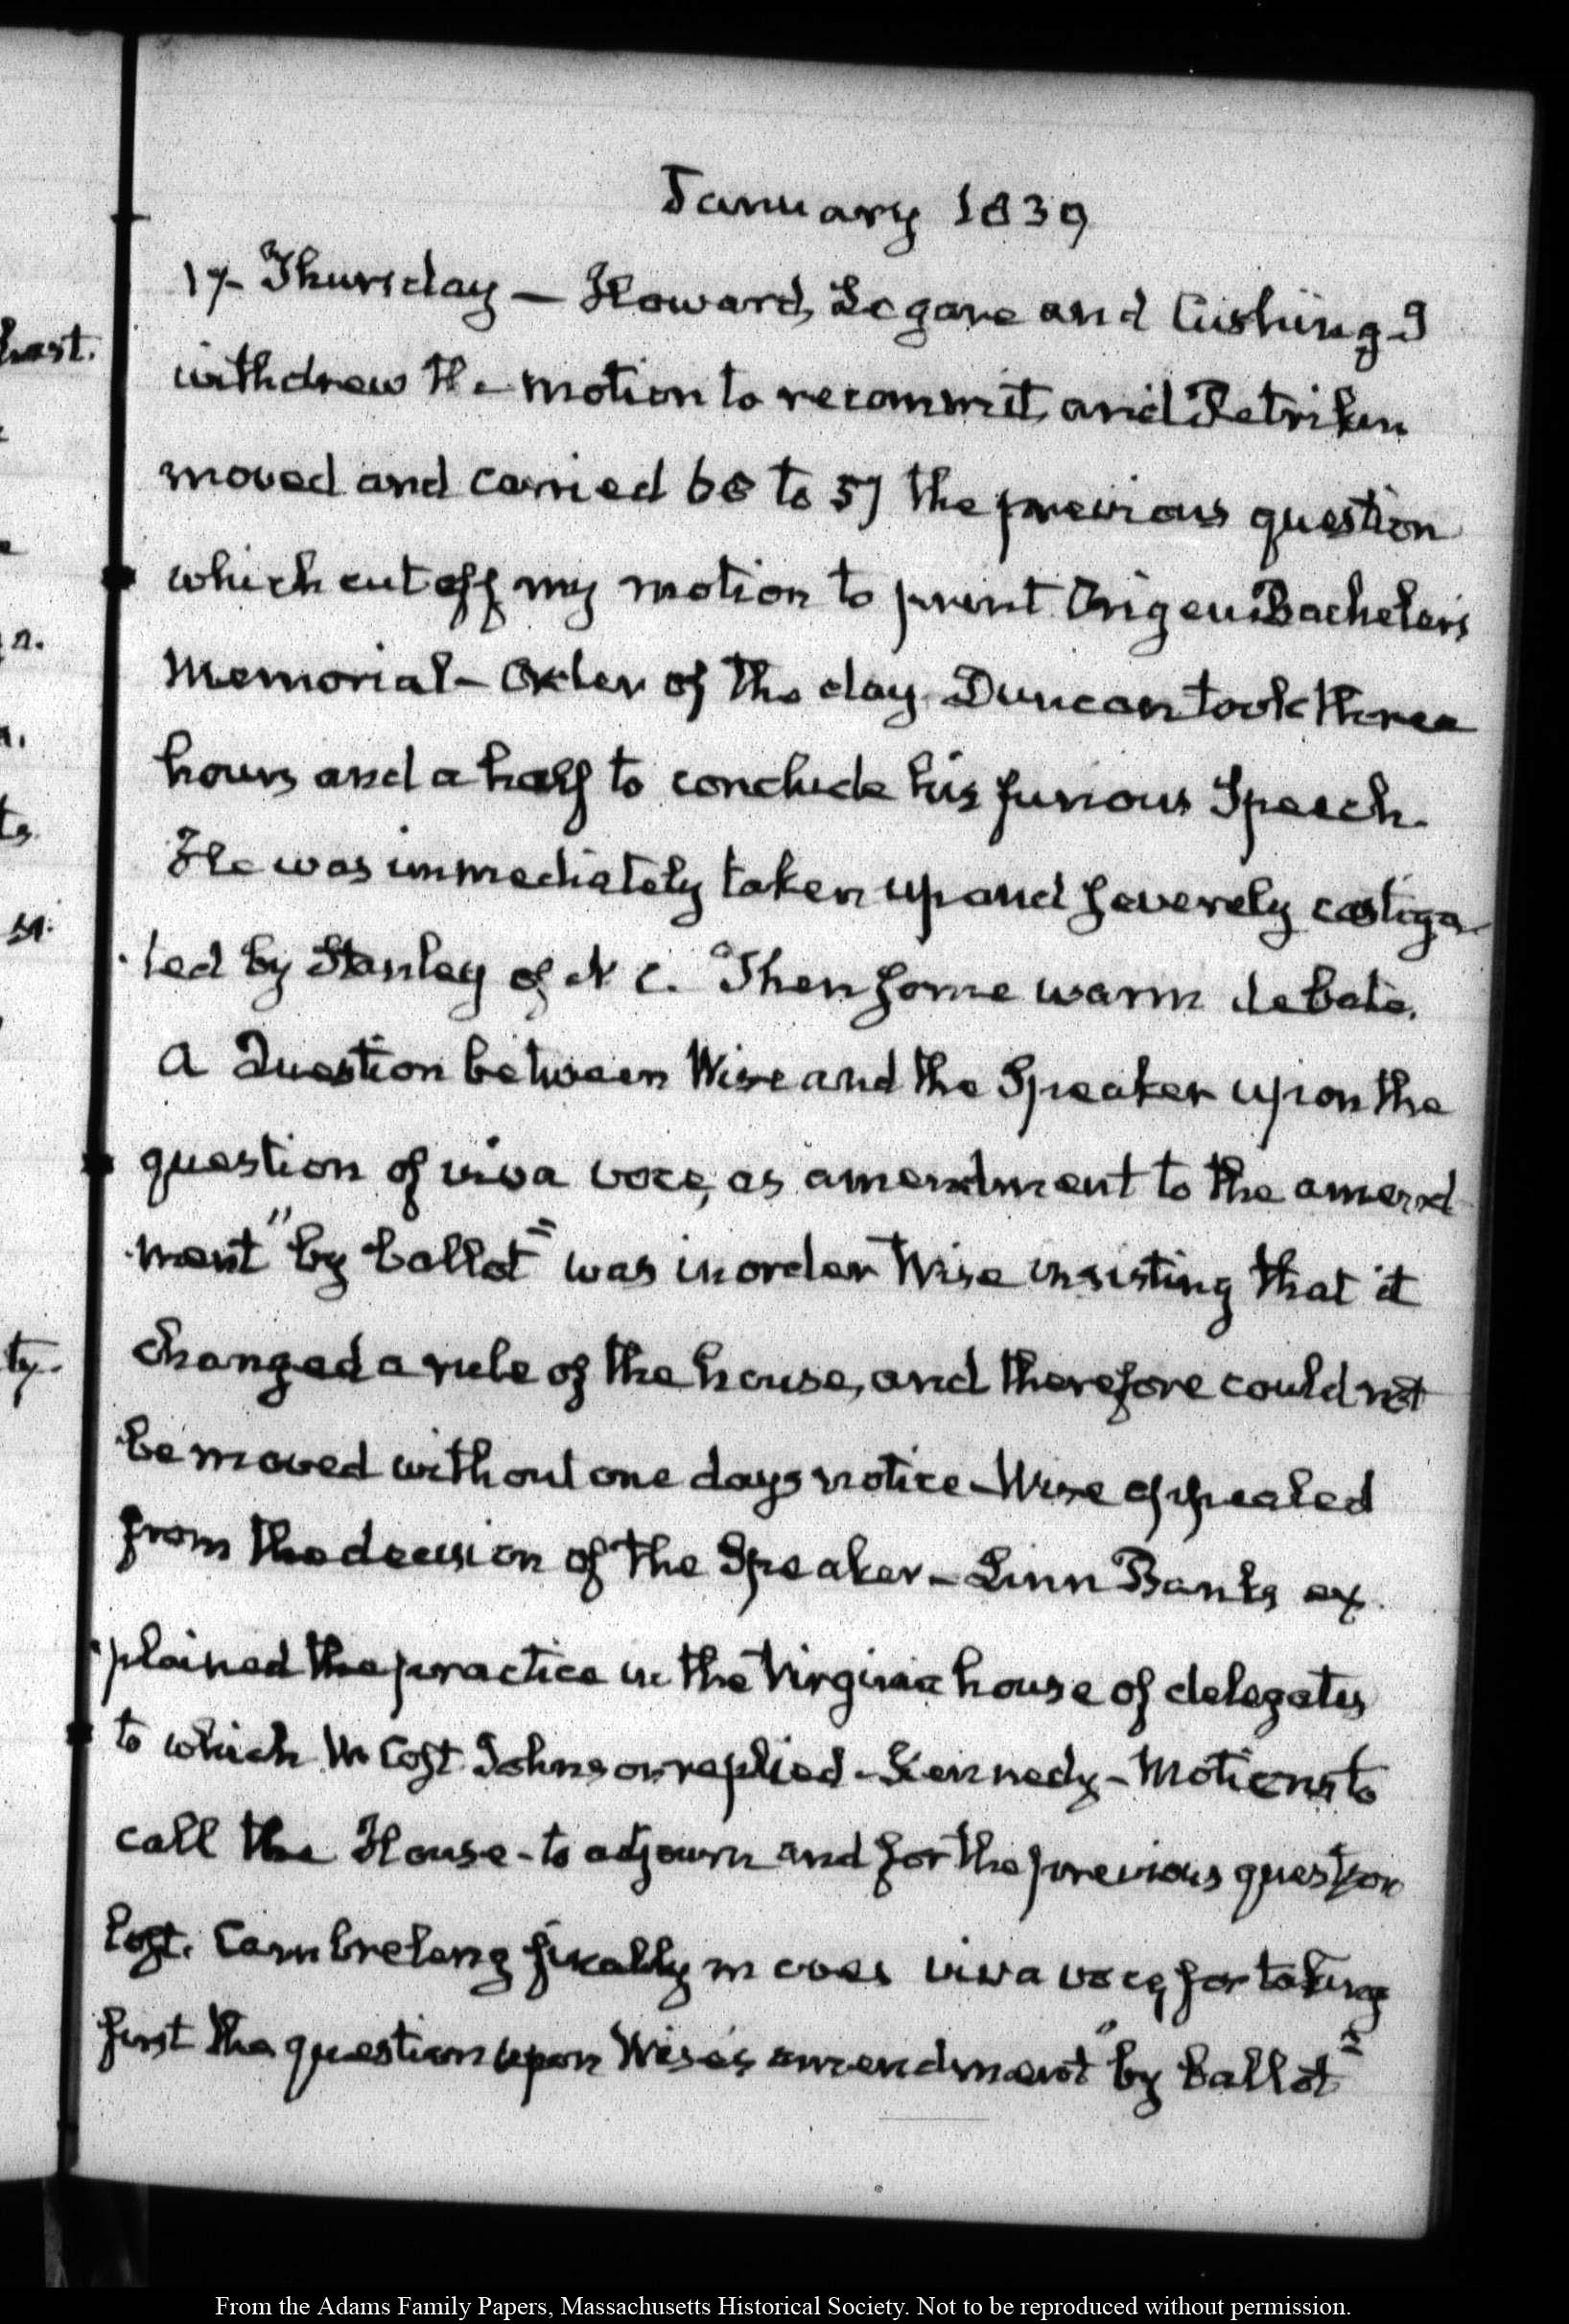 January 1839
17. Thursday — Howard, Legare and Cushing. I
withdrew the motion to recommit, and Petriken
moved and carried 68 to 57 the previous question
which cut off my motion to print Origen Bacheler's
Memorial — Order of the day. Duncan took three
hours and a half to conclude his furious Speech.
He was immediately taken up and severely castiga-
ted by Stanley of N C. Then some warm debate.
A Question between Wise and the Speaker upon the
question of viva voce, as amendment to the amend
ment "by ballot" was in order Wise insisting that it
changed a rule of the house, and therefore could not
be moved without one days notice — Wise appealed
from the decision of the Speaker — Linn Banks ex
plained the practice in the Virginia house of delegates
to which W Cost Johnson replied — Kennedy — Motions to
call the House — to adjourn and for the previous question
lost. Cambreleng finally moves viva voce, for taking
first the question upon Wise's amendment "by ballot"
hast.
a.
ts
ty.
From the Adams Family Papers, Massachusetts Historical Society. Not to be reproduced without permission.